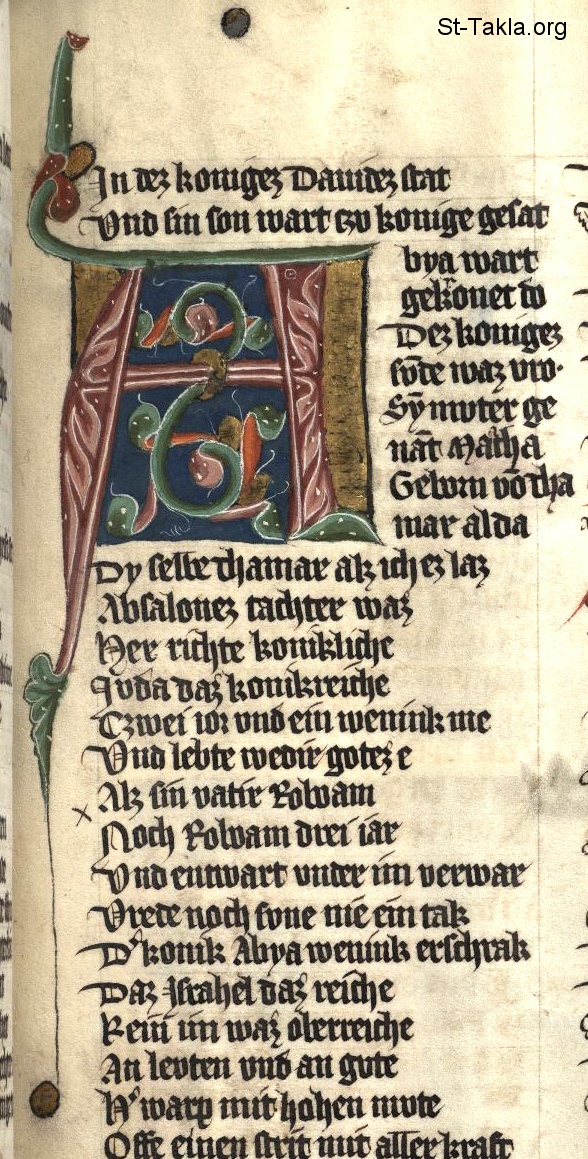 St-Takla.org
In dez konigez Dauidez stat
Vnd sin son wart czv konige gesat
Abya wart
gekronet do
Dez konigez
vro
Sy mvter ge
nāt Matha
Geborn vō tha
mar alda
Dy selbe thamar alz ich ez laz
Absalonez tachter waz
Her richte konikliche
Jvda daz konikreiche
Tzwei ior vnd ein wenink me
Vnd lebte wedir gotez e
Alz sin vatir Roboam
Noch Roboam drei iar
Vnd entwart vnder im verwar
Vrede noch svne nie ein tak
D' konik Abya wenink erschrak
Daz Israhel daz reiche
Kein im waz oberreiche
An levten vnd an gvte
H' warp mit hohen mvte
Offe einen strit mit aller kraft